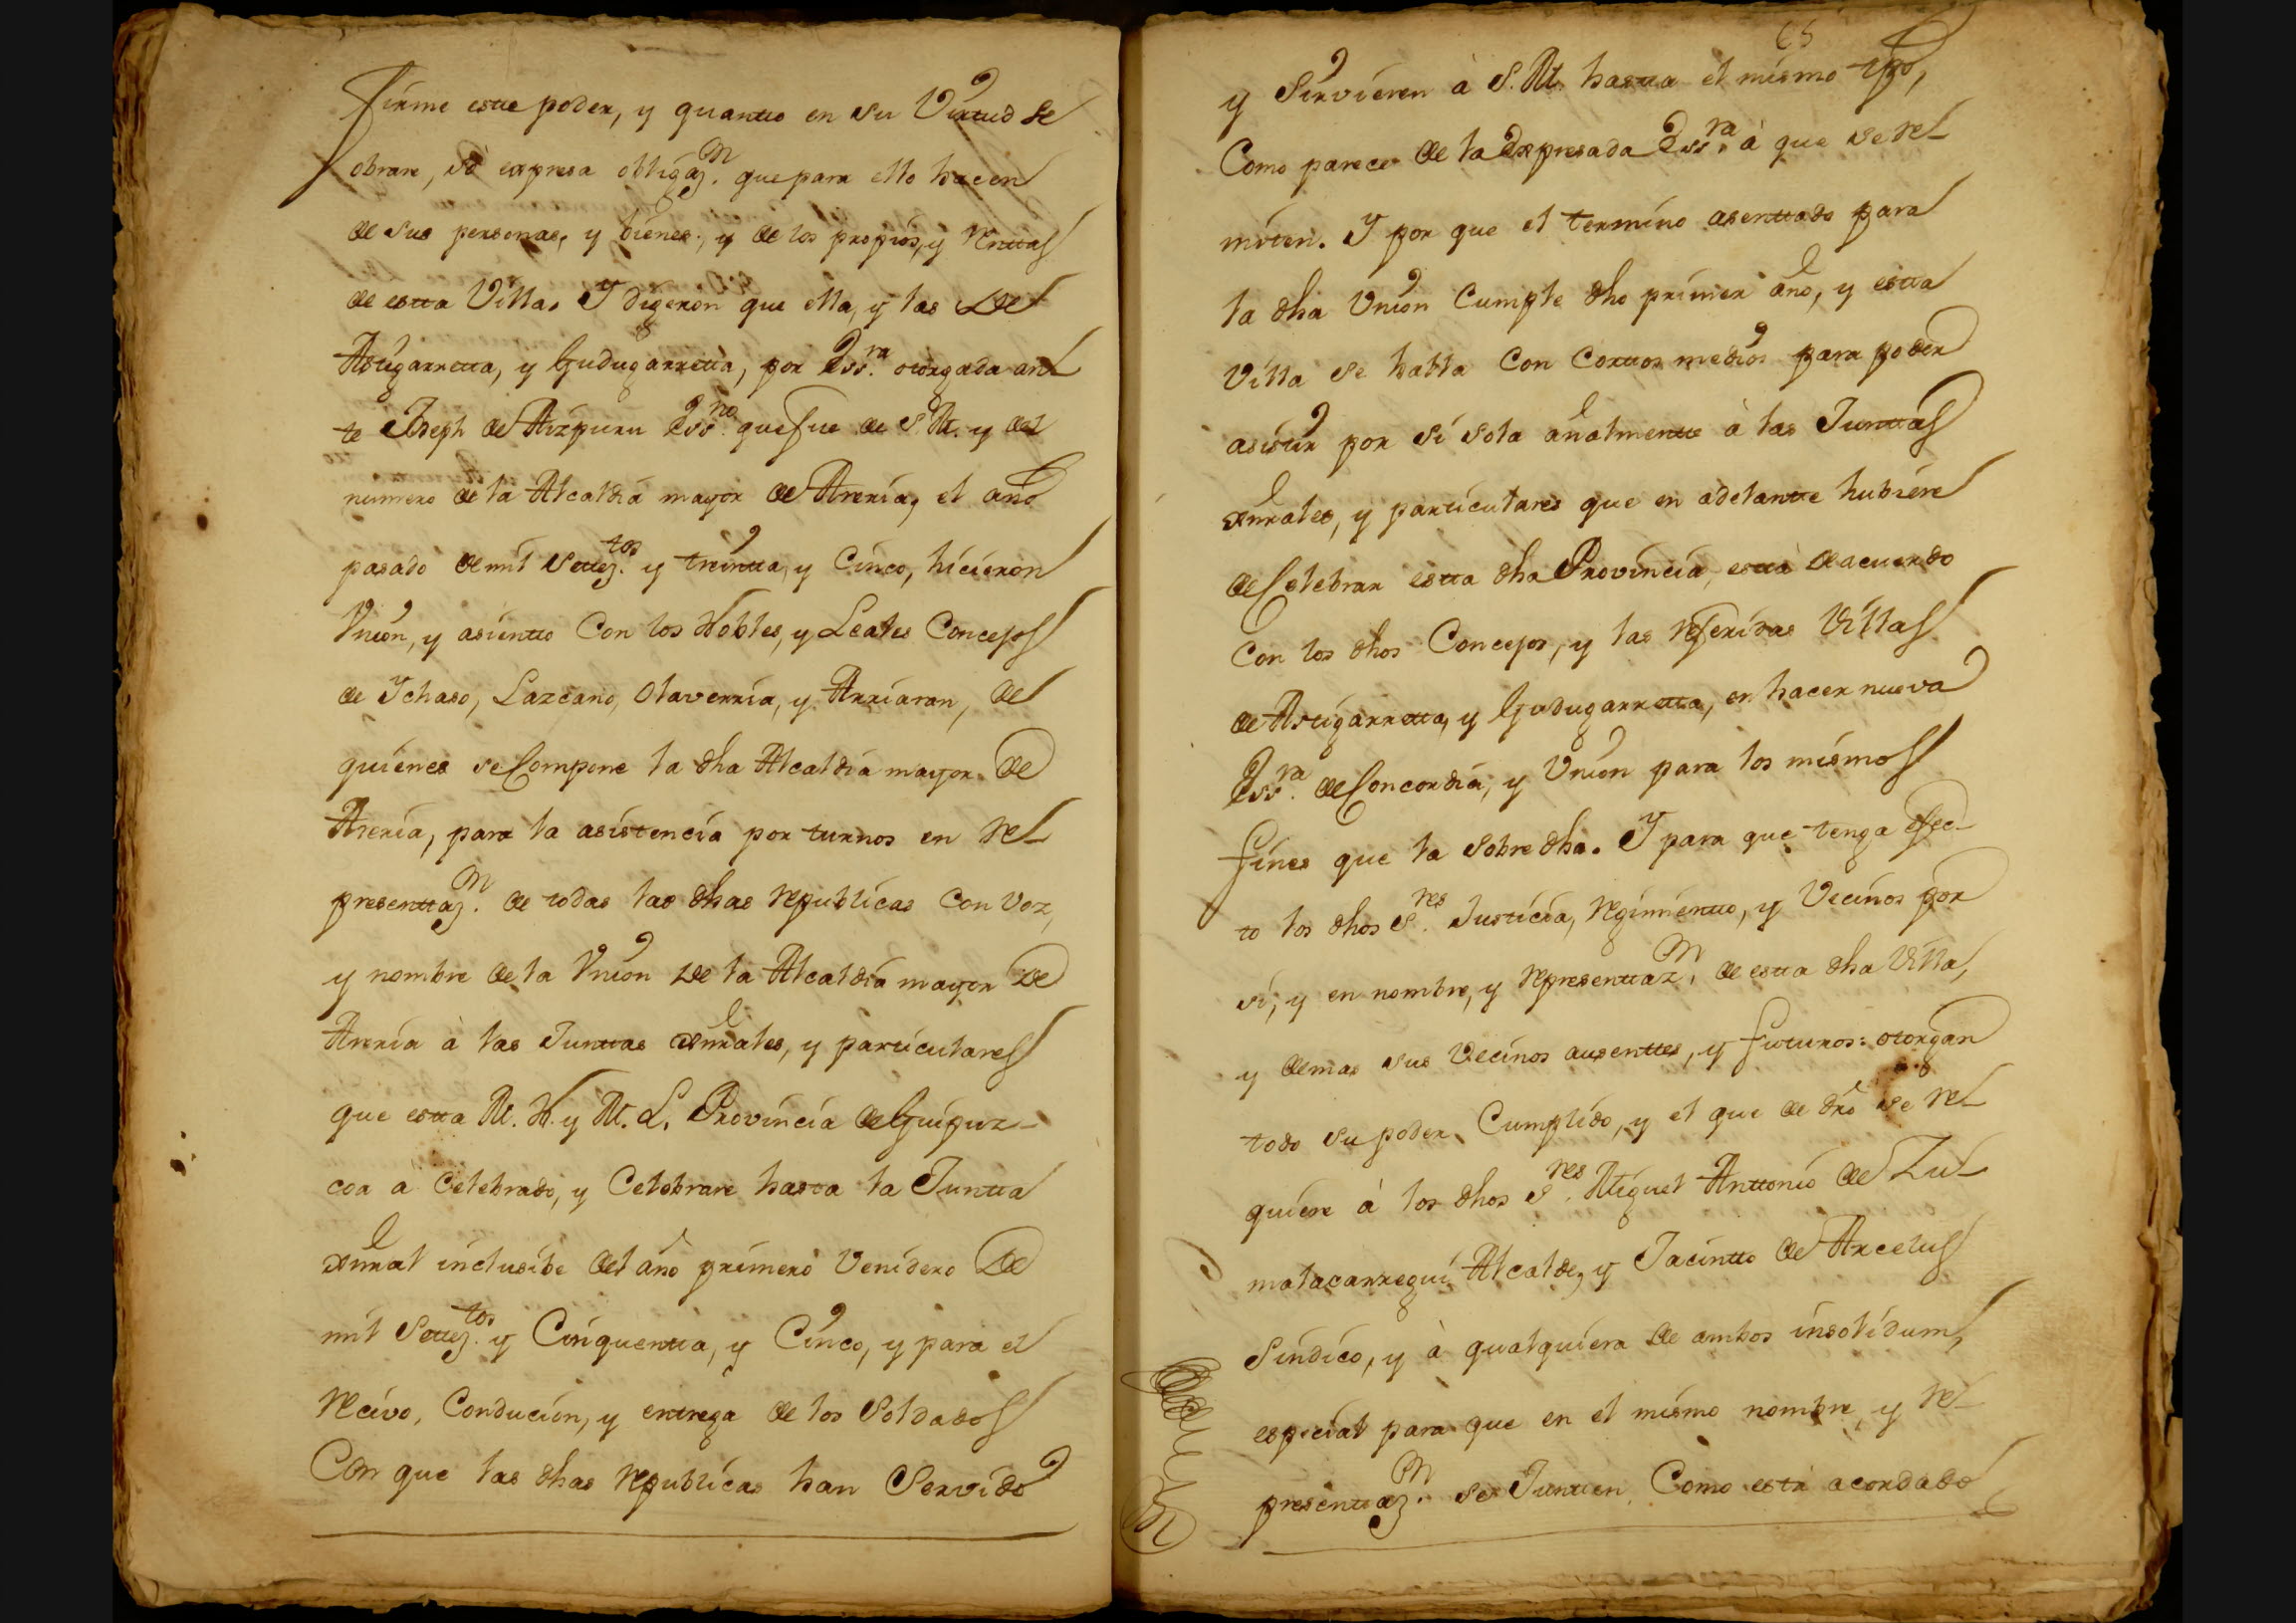 firme estte poder, y quantto en su Virttud se
obrare, só expresa obligaz.n que para ello hacen
de sus personas, y bienes, y de los propios, y Renttas
de estta Villa. Y digeron que ella, y las de
Asttigarretta, y Gudugarretta, por Ess.ra otorgada an-
te Joseph de Aizpuru Ess.no que fue de S. M. y del
numero de la Alcaldia mayor de Areria, el año
pasado de mil Settez.tos y treintta, y Cinco, hicieron
Vnion, y asientto Con los Nobles, y Leales Concejos
de Ychaso, Lazcano, Olaverria, y Arriaran, de
quienes se Compone la dha Alcaldia mayor de
Areria, para la asistencia por turnos en Re-
presenttaz.n de todas las dhas Republicas Con Voz,
y nombre de la Vnion de la Alcaldia mayor de
Areria à las Junttas Gnrales, y particulares
que estta M. N. y M. L. Provincia de Guipuz-
coa à Celebrado, y Celebrare hasta la Juntta
Gnral inclusibe del año primero Venidero de
mil Settez.tos y Cinquentta, y Cinco, y para el
Recivo, Conducion, y entrega de los Soldados
Con que las dhas Republicas han Servido
65
y Sirvieren à S. M. hasta el mismo tpo,
Como parece de la Expresada Ess.ra à que se Re-
miten. Y por que el termino asenttado para
la dha Vnion Cumple dho primer año, y estta
Villa se halla Con Corttos medios para poder
asistir por si sola añalmentte à las Junttas
Gnrales, y particulares que en adelantte hubiere
de Celebrar estta dha Provincia, esttà de acuerdo
Con los dhos Concejos, y las Referidas Villas
de Asttigarretta, y Gudugarretta, en hacer nueva
Ess.ra de Concordia, y Vnion para los mismos
fines que la Sobre dha. Y para que tenga efec-
to los dhos S.res Justicia, Regimientto, y Vecinos por
si, y en nombre, y Representtaz.n de estta dha Villa,
y demas sus Vecinos ausenttes, y futuros: otorgan
todo su poder Cumplido, y el que de dro se Re-
quiere à los dhos S.res Miguel Anttonio de Zu-
malacarregui Alcalde, y Jacintto de Arcelus
Sindico, y à qualquiera de ambos insolidum,
especial para que en el mismo nombre, y Re-
presenttaz.n se Juntten Como està acordado